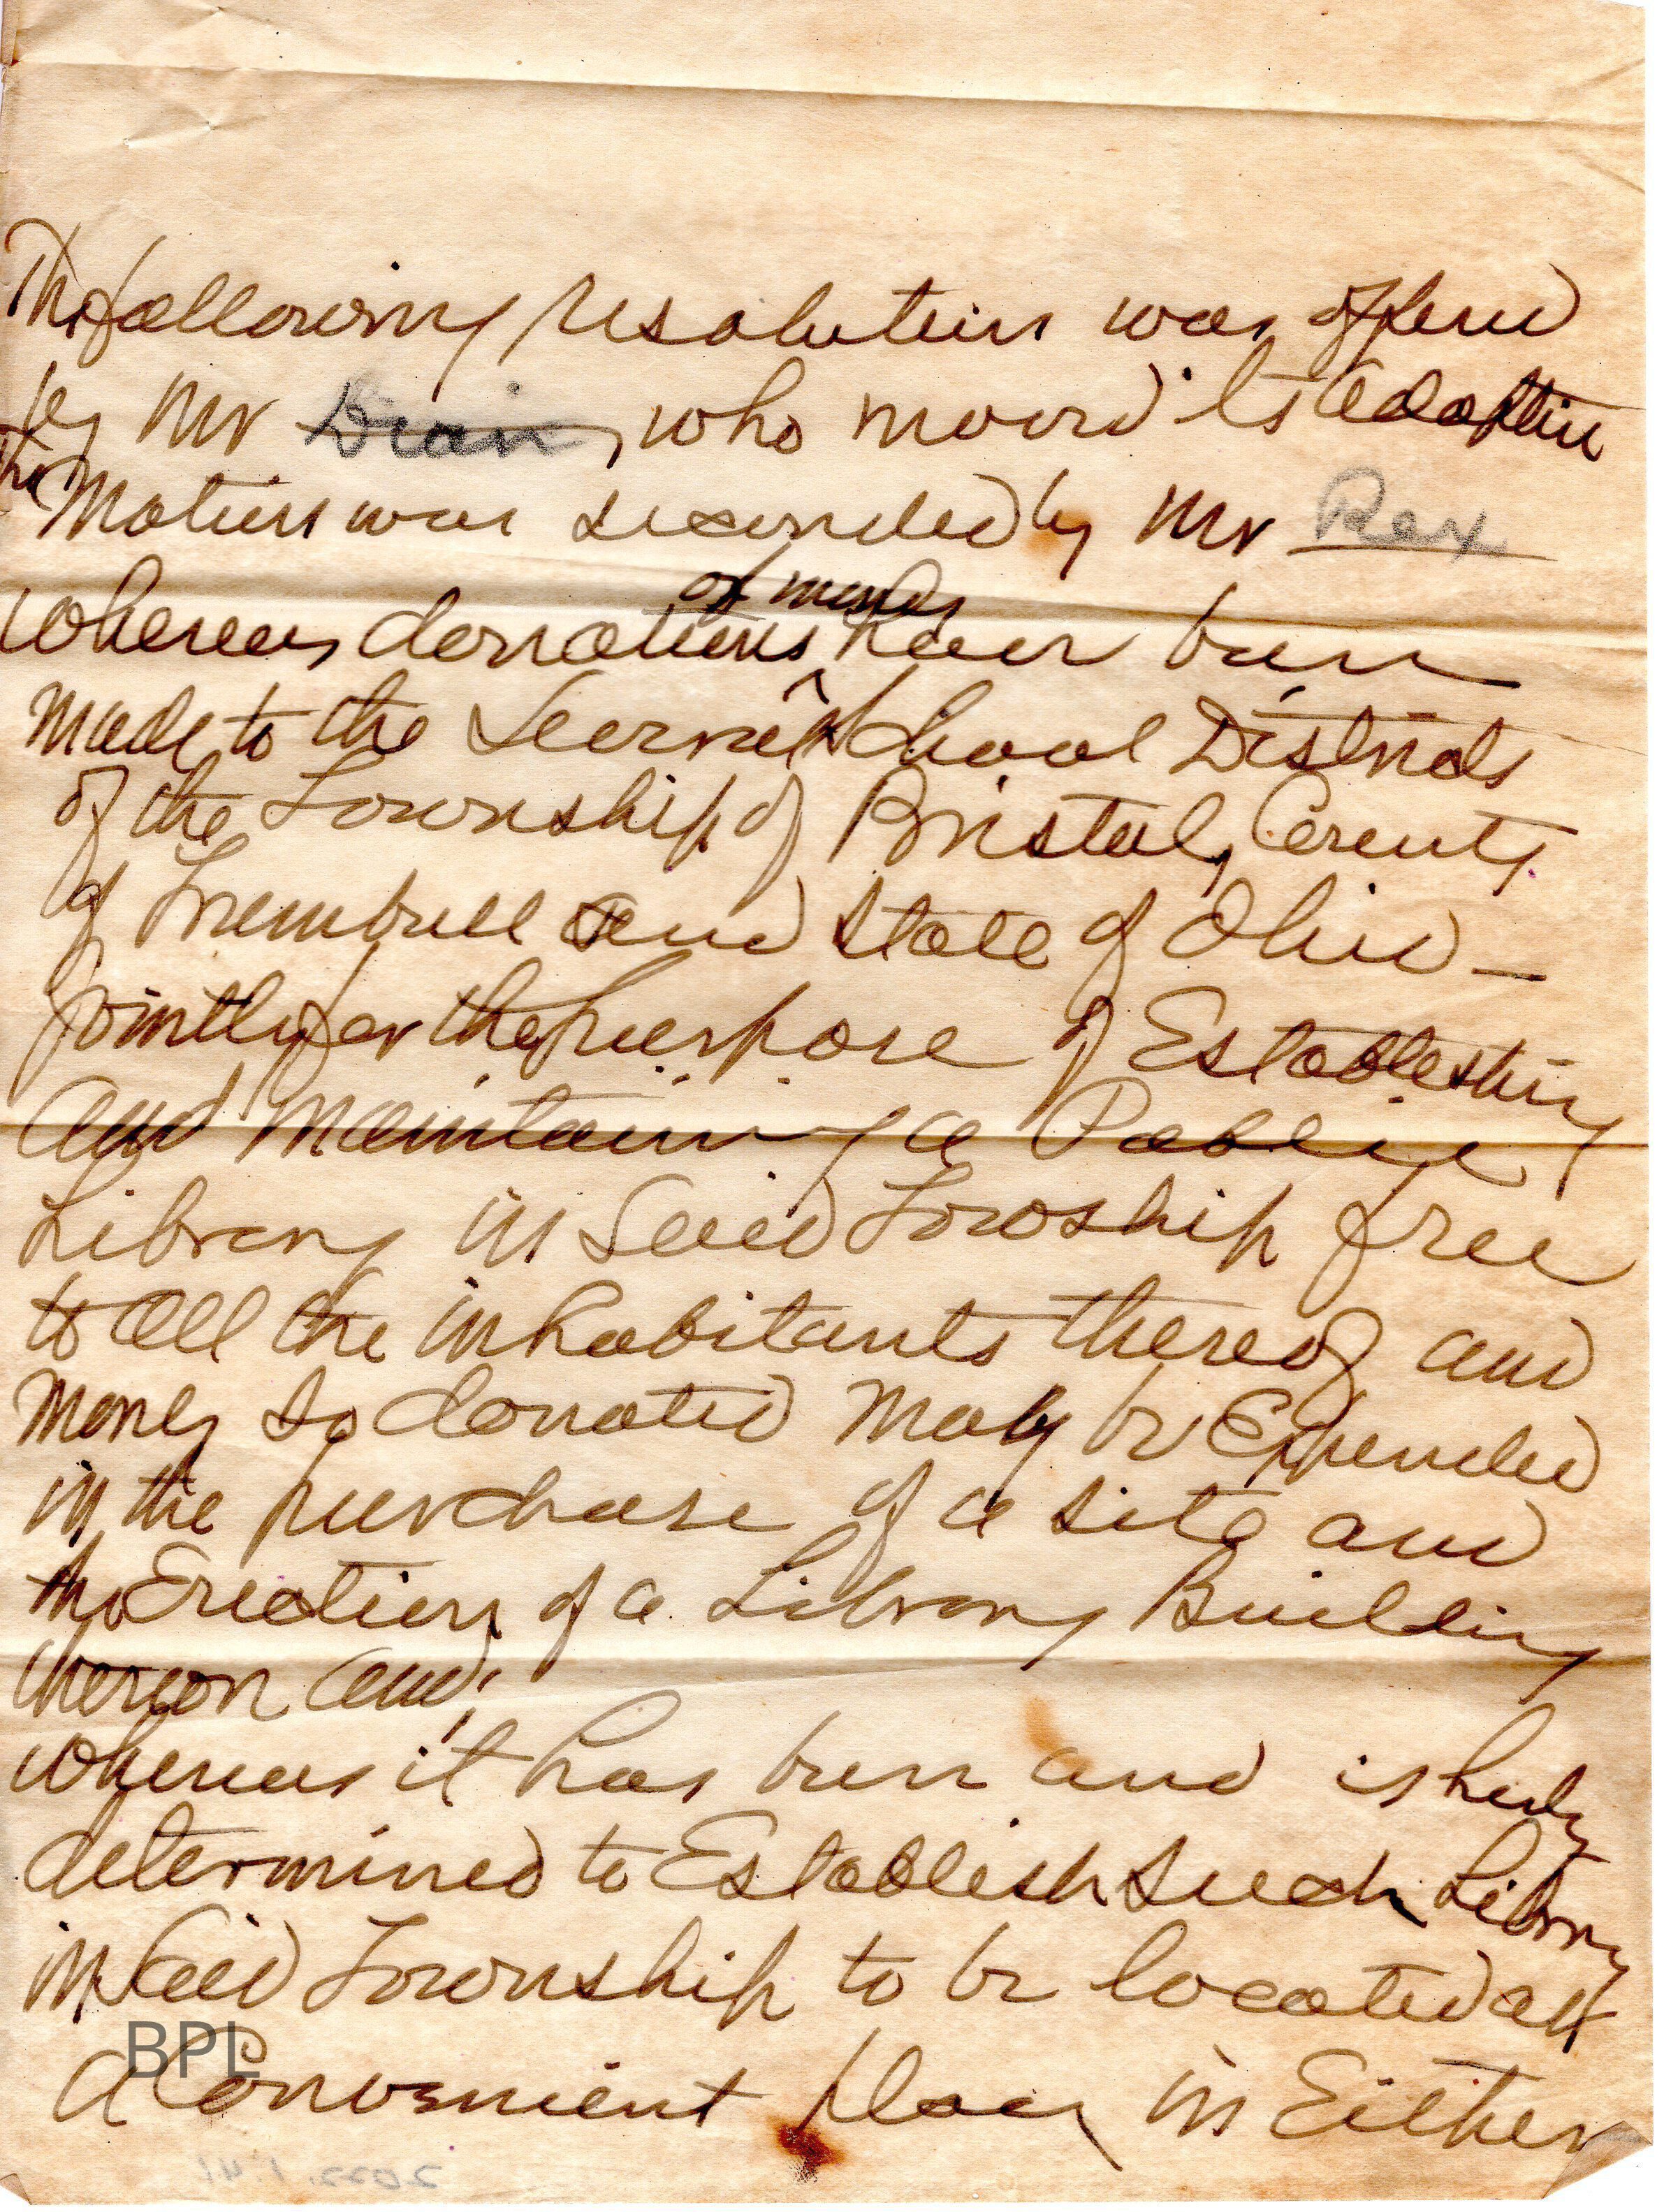 The following resolution was offered
by Mr Drain, who moved its adoption
The Motion was seconded by Mr Rex
whereas donations of money have been
made to the several School Districts
of the Township of Bristol, County
of Trumbull and State of Ohio —
jointly for the purpose of Establishing
and Maintaining a Public
Library in Said Towship free
to all the inhabitants thereof and
money so donated may be Expended
in the purchase of a site and
the Erection of a Library Building
thereon and;
whereas it has been and is hereby
determined to Establish such Library
in Said Township to be located at
a Convenient place in Either
BPL
2022.1.41